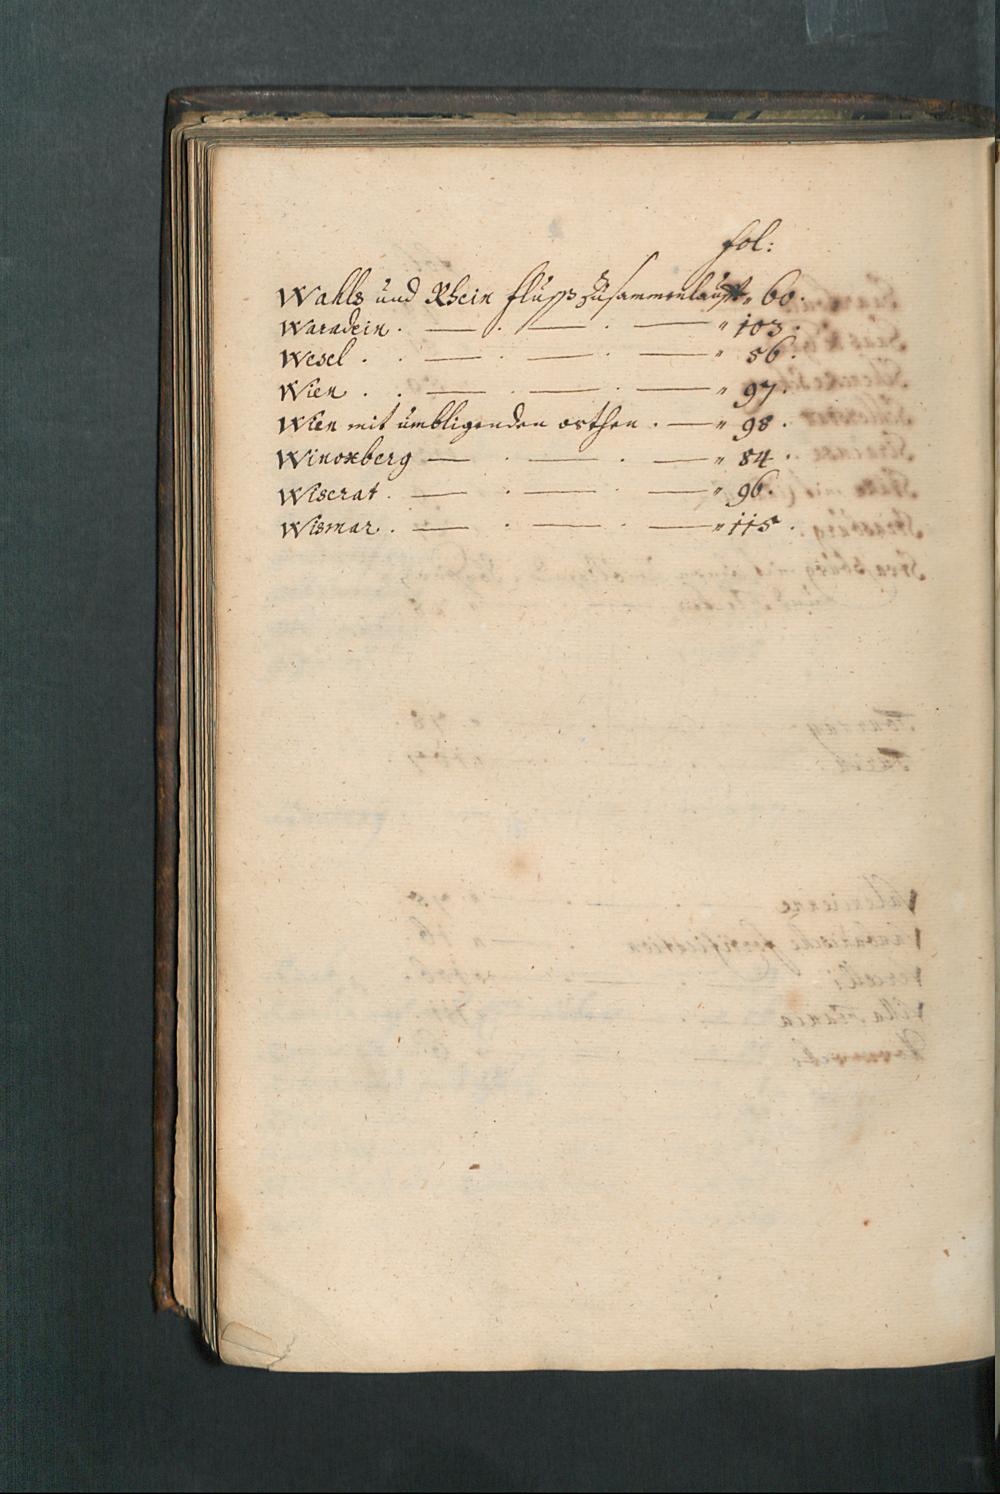 fol:
Wahls und Rhein fluss zusammenlauff „ 60.
Waradein . — . — . — „ 103.
Wesel . . — . — . — „ 56.
Wien . . — . — . — „ 97.
Wien mit umbligenden orthen . — „ 98.
Winoxberg — . — . — „ 84.
Wiserat . — . — . — „ 96.
Wismar . — . — . — „ 115.